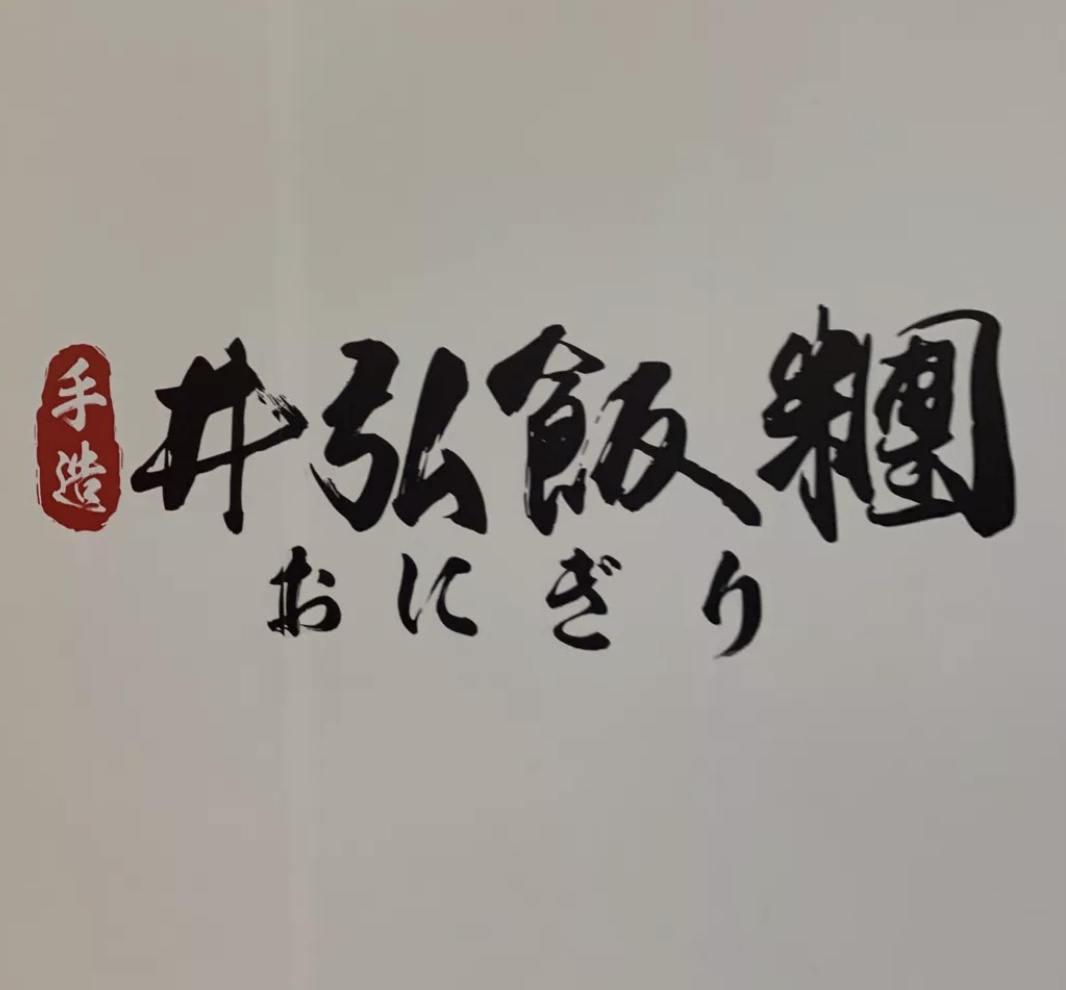 手造
井弘飯糰
おにぎり